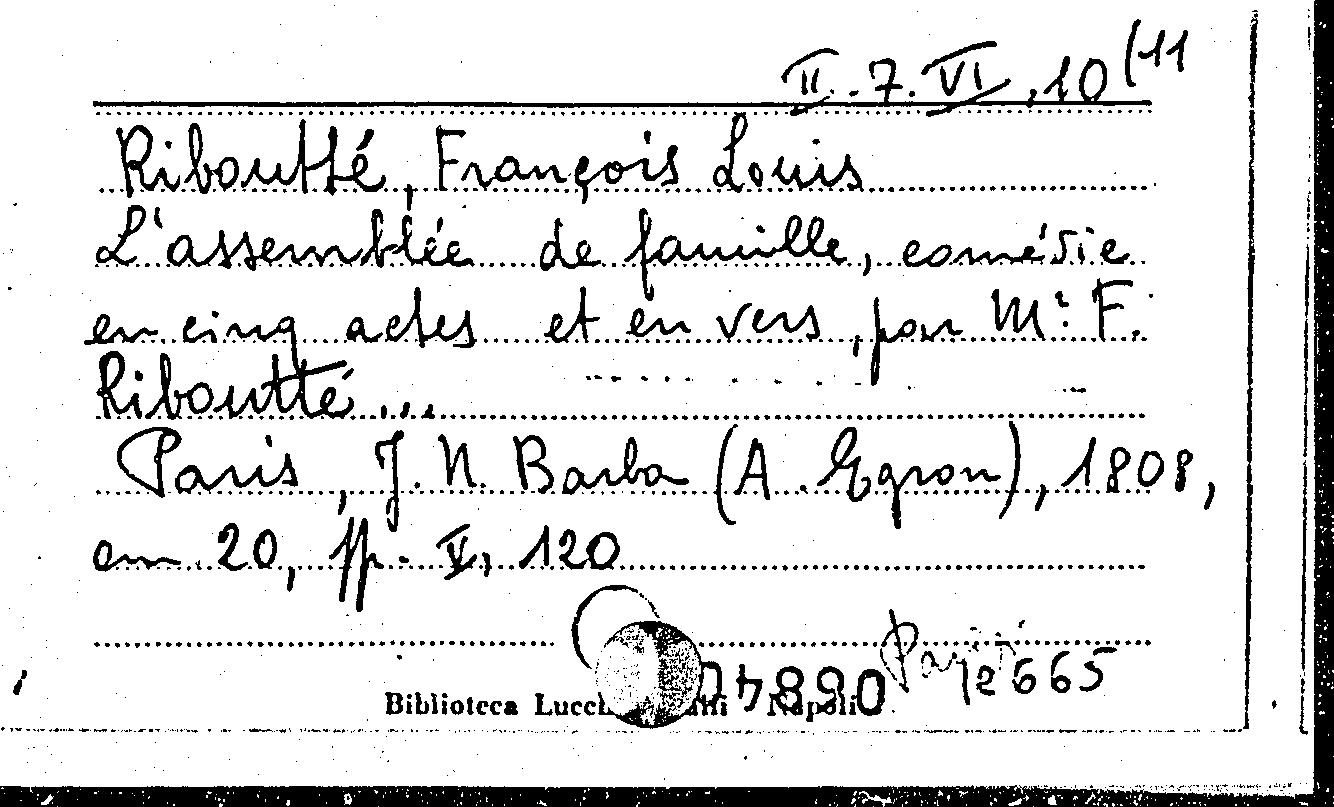 II. 7. VI, 10 (11
Riboutté, François Louis
L'assemblée de famille, comédie
en cinq actes et en vers, par Mr. F.
Riboutté...
Paris, J. N. Barba (A. Egron), 1808,
cm. 20, pp. V, 120
Paris 12665
Biblioteca Napoli